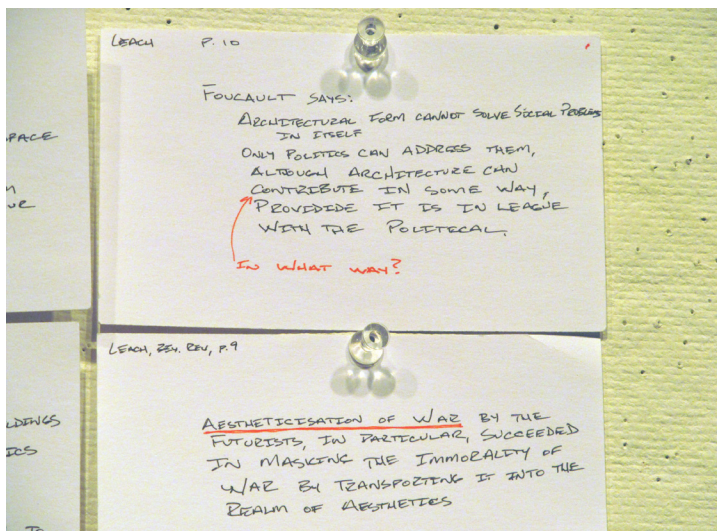 LEACH P. 10
FOUCAULT SAYS:
ARCHITECTURAL FORM CANNOT SOLVE SOCIAL PROBLEMS
IN ITSELF
ONLY POLITICS CAN ADDRESS THEM,
ALTHOUGH ARCHITECTURE CAN
CONTRIBUTE IN SOME WAY,
PROVIDIDE IT IS IN LEAGUE
WITH THE POLITICAL.
IN WHAT WAY?
LEACH, REV, P. 9
AESTHETICISATION OF WAR BY THE
FUTURISTS, IN PARTICULAR, SUCCEEDED
IN MASKING THE IMMORALITY OF
WAR BY TRANSPORTING IT INTO THE
REALM OF AESTHETICS
PACE
UR
LDINGS
ICS
TO